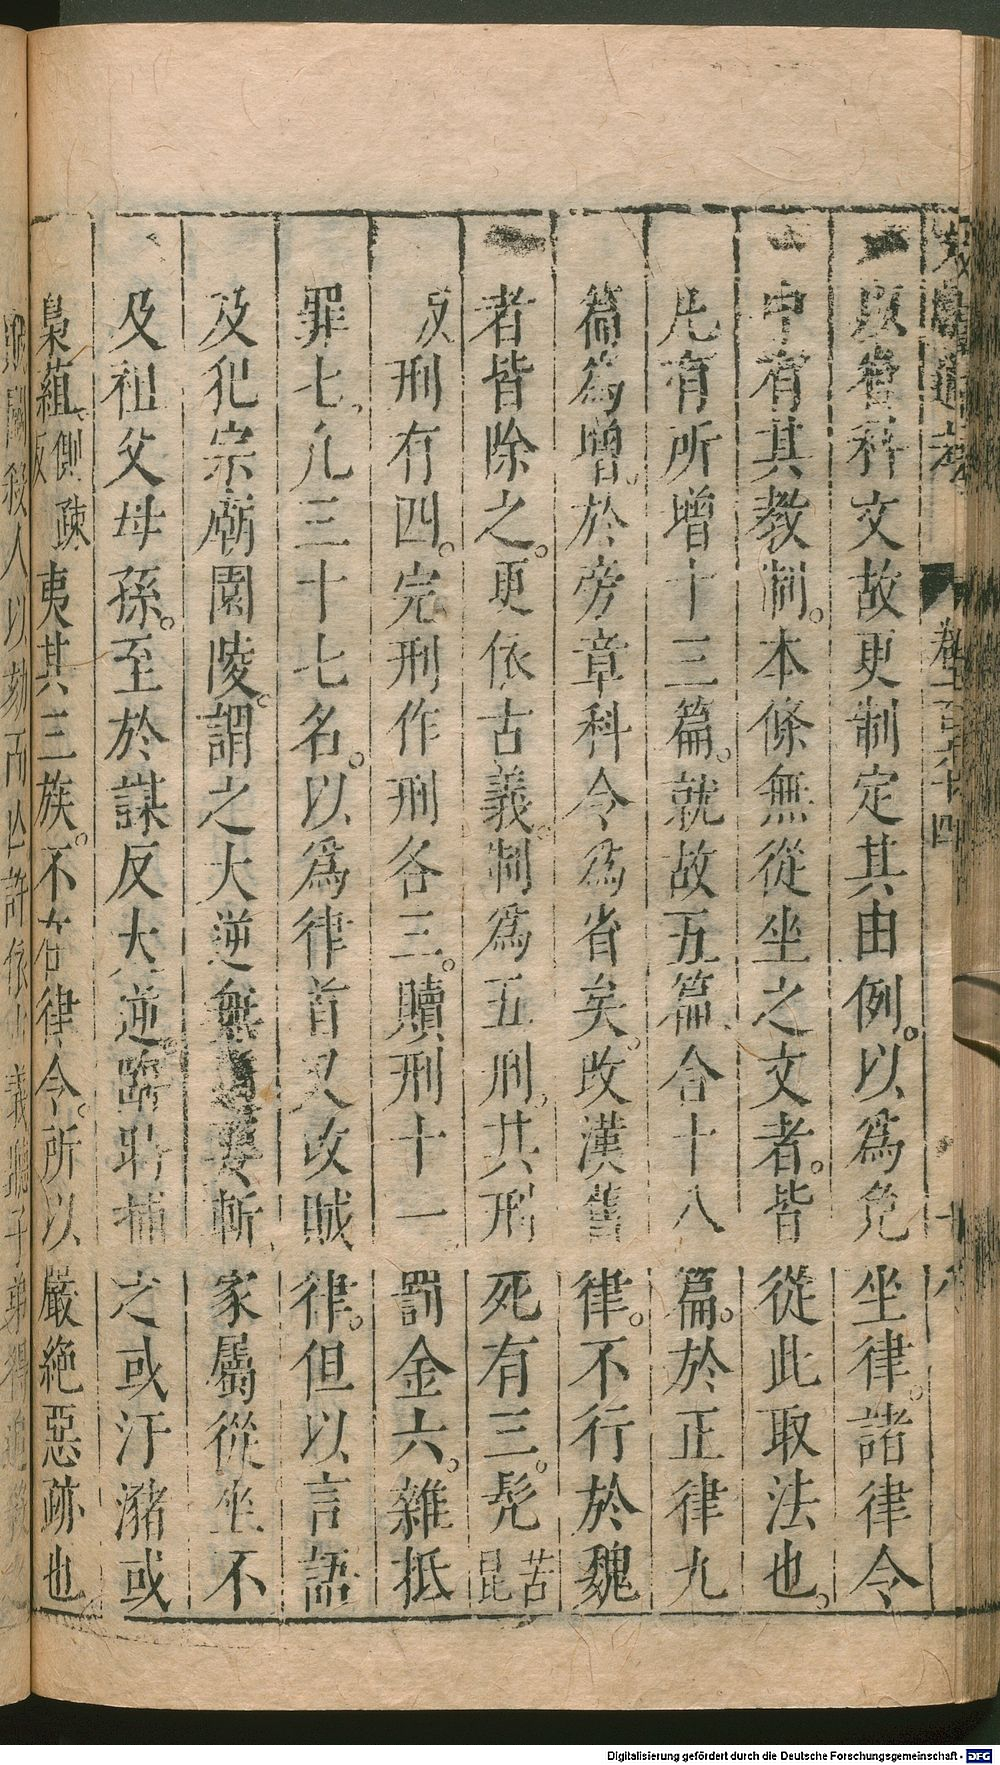 文獻通考 卷一百六十四 十八
以省科文故更制定其由例以爲免坐律諸律令
中有其教制本條無從坐之文者皆從此取法也
凡有所增十三篇就故五篇合十八篇於正律九
篇爲增於旁章科令爲省矣改漢舊律不行於魏
者皆除之更依古義制爲五刑共刑死有三髠苦昆
反刑有四完刑作刑各三贖刑十一罰金六雜抵
罪七凡三十七名以爲律首又改賊律但以言語
及犯宗廟園陵謂之大逆無道要斬家屬從坐不
及祖父母孫至於謀反大逆臨時捕之或汙瀦或
梟葅側疎反夷其三族不在律令所以嚴絶惡跡也
鬭殺人以劾而亡許依古義聽子弟得追殺之
Digitalisierung gefördert durch die Deutsche Forschungsgemeinschaft - DFG